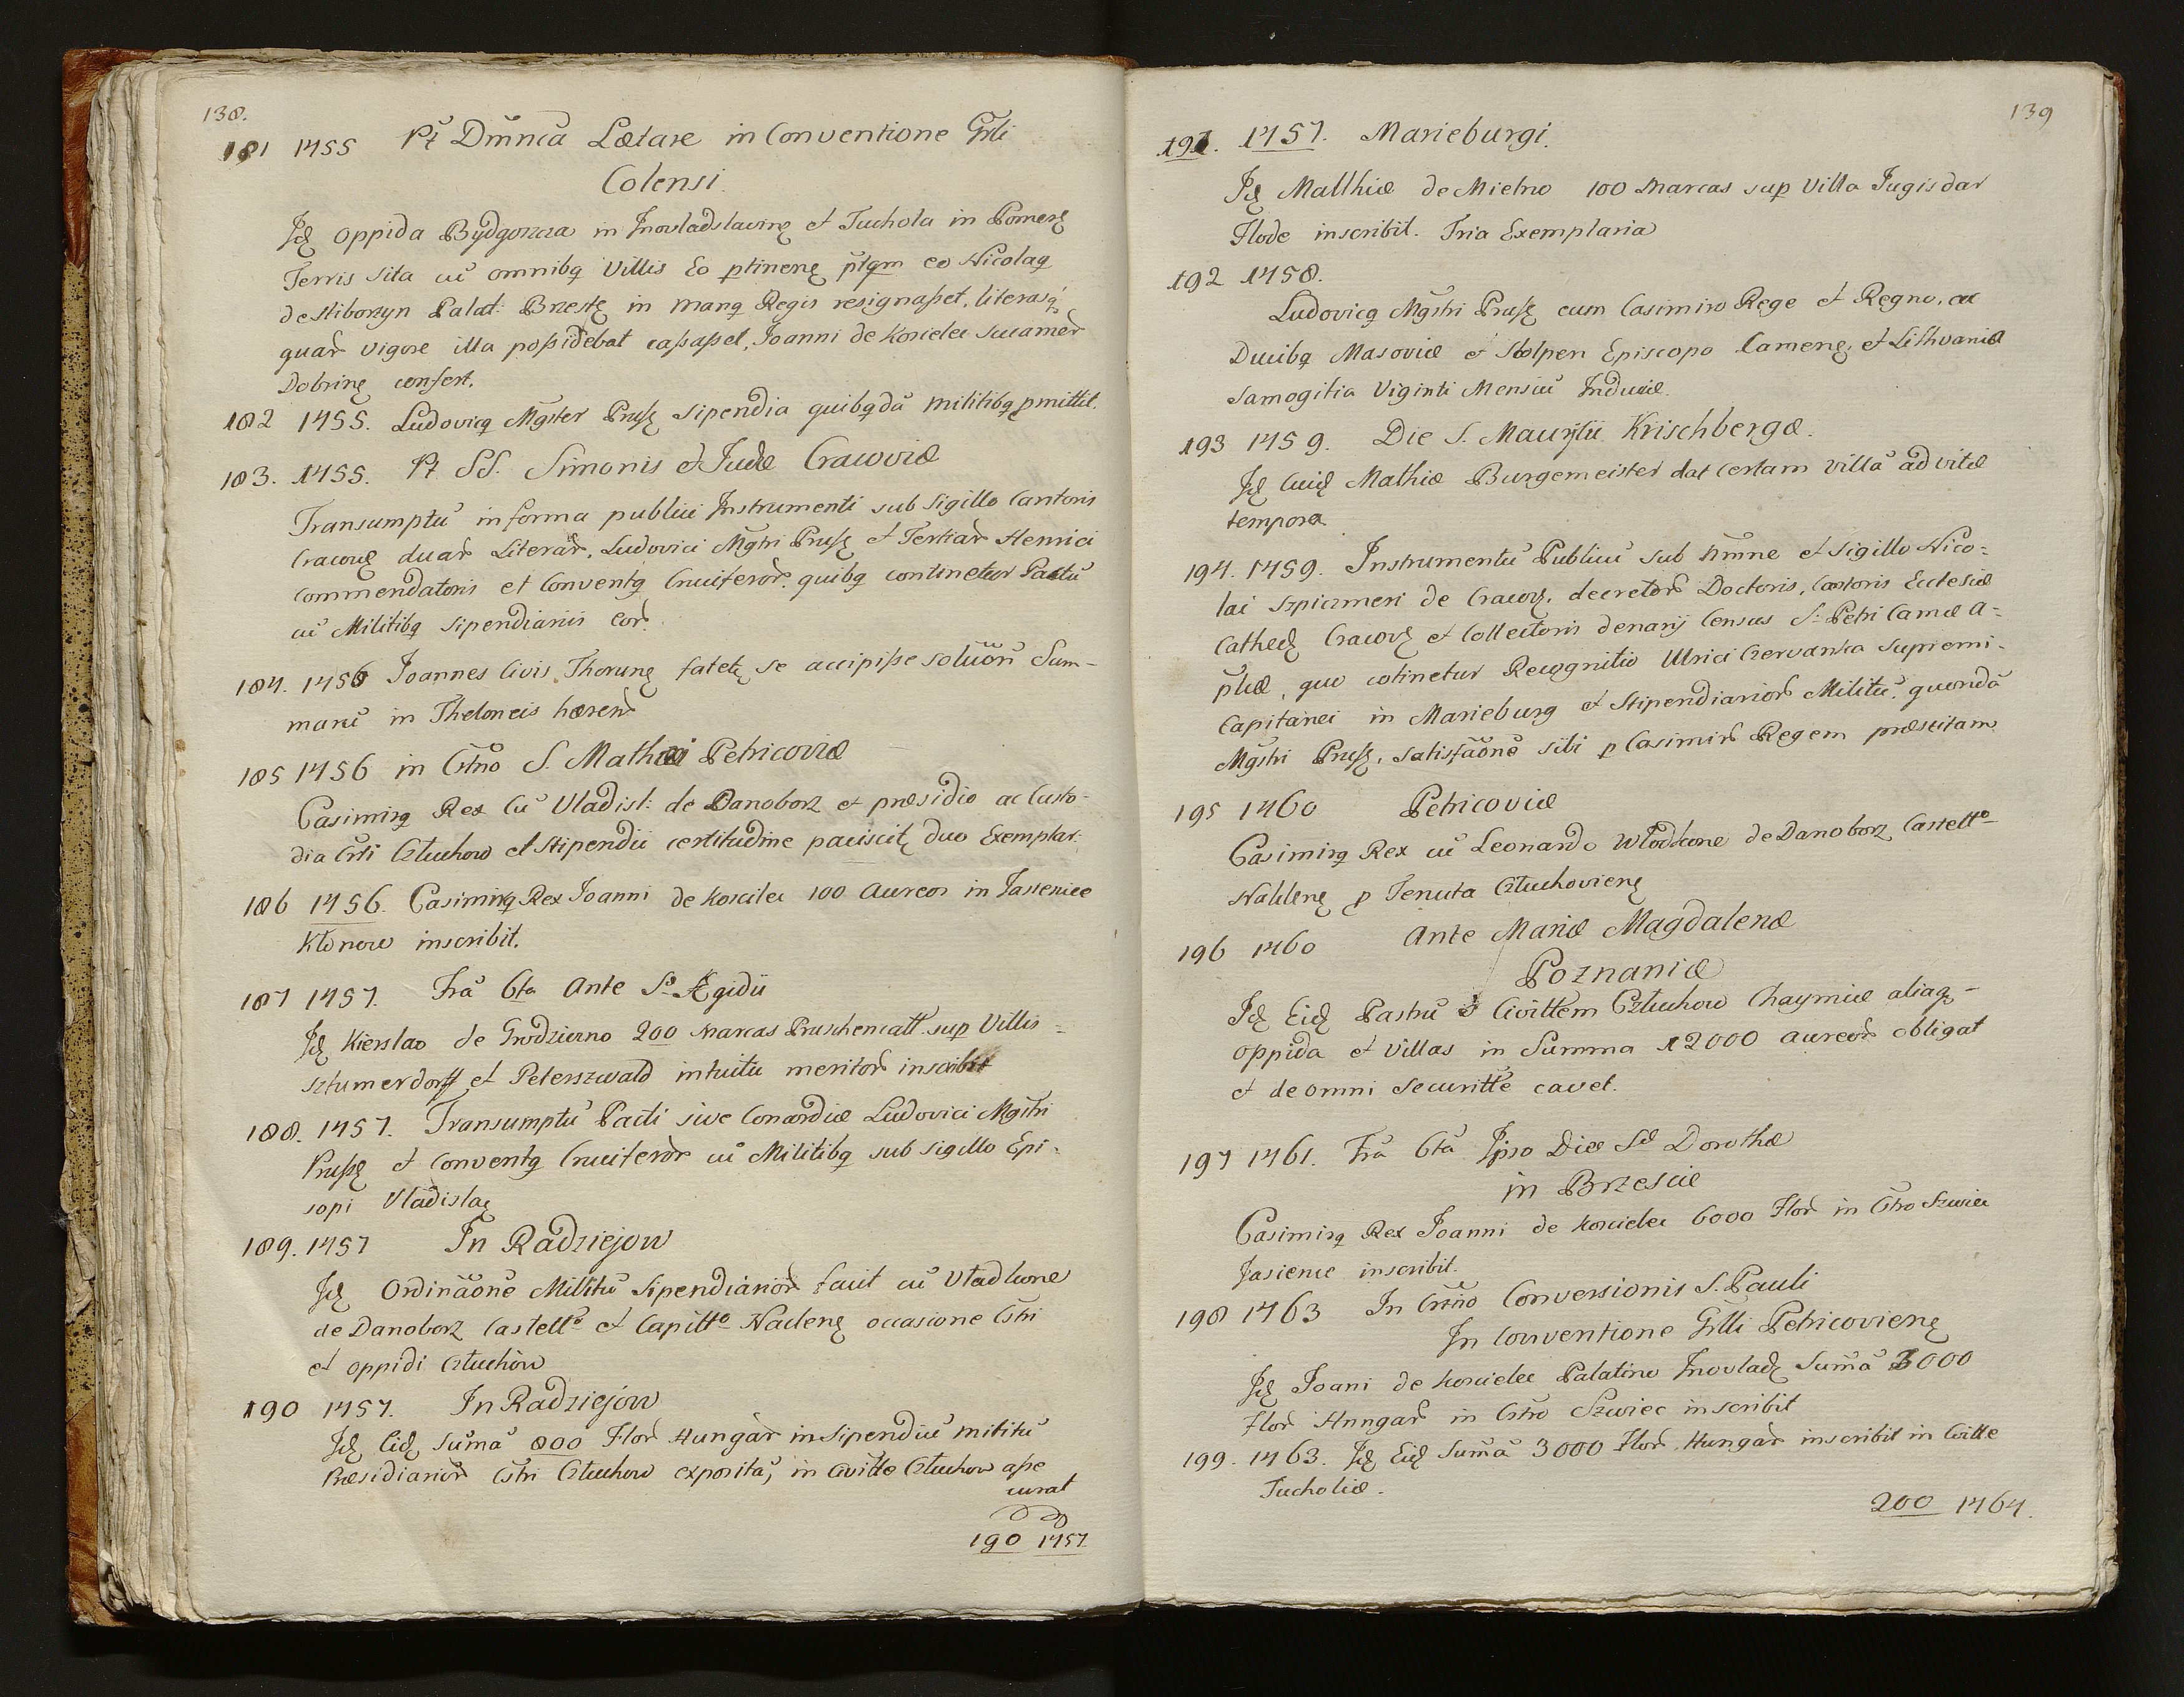 138.
181 1455 Pt Dmnca Lætare in Conventione Grli
Colensi.
Id oppida Bydgoszcza in Inovladslaving et Tuchola in Pomerę
Terris Sita cu omnibq Villis Eo ptinenę ptqm eo Nicolaq
de stiborzyn Palat: Brzestę in manq Regis resignaßet, literasq
quar vigore illa poßidebat caßaßet, Joanni de Koscielec Sucamer
Dobrinę confert.
182 1455. Ludovicq Mgster Prußę Sipendia quibqda militibq pmittit.
183. 1455. Pt SS. Simonis et Judæ Cracoviæ
Transumptu in forma publici Instrumenti sub Sigillo Cantoris
Cracovę duar Literar, Ludovici Mgtri Prußę et Tertiar Henrici
commendatoris et Conventq Cruciferor quibq continetur Pactu
cu Militibq Sipendiariis eor.
184. 1456 Joannes Civis Thorunę fatetę se accipiße soluon Sum-
maru in Theloneis hæren
185 1456 in Crtno S. Mathæi Petricoviæ
Casimirq Rex Cu Vladisl: de Danaborz et præsidio ac Custo-
dia Crti Cztuchow et Stipendii certitudine paciscit, duo Exemplar.
186 1456. Casimirq Rex Joanni de Koscilec 100 Aureos in Jasseniec
Ktonow inscribit.
187 1457. Fra 6ta Ante So Ægidii
Id Kierslao de Grodziczno 200 Marcas Pruschencatt. sup Villis -
Sztumerdorff et Peterszwald intuitu meritor inscribit
188. 1457. Transumptu Pacti sive Concordiæ Ludovici Mgtri
Prußę et Conventq Cruciferor cu Militibq sub sigillo Epi-
sopi Vladislaę
189. 1457 In Radziejow
Id Ordinaone Militu Sipendiarior facit cu Vladkone
de Danoborz Castello et Capitto Naclenę occasione Cstri
et oppidi Cztuchow
190 1457. In Radziejow
Id Eid suma 800 Flor Hungar in Sipendiu militu
Præsidiarior Cstri Cztuchow exposita, in Civitte Cztuchow aße
curat
190 1457.
139
191. 1457. Marieburgi.
Id Matthiæ de Mielno 100 Marcas sup Villa Jugisdar
Flode inscribit. Tria Exemplaria
192 1458.
Ludovicq Mgstri Prußę cum Casimiro Rege et Regno, ac
Ducibq Masoviæ et Stolpen Episcopo Camenę, et Lithvaniæ
Samogitia Viginti Mensiu Induciæ.
193 1459. Die S. Maurytii Krischbergæ.
Id Cuid Mathiæ Burgemeister dat certam villa ad vitæ
tempora
194. 1459. Instrumentu Publicu sub nmne et sigillo Nico-
lai Szpicimeri de Cracov, decretor Doctoris, Cantoris Ecclesiæ
Cathedę Cracovę et Collectoris denarij Census S. Petri Camæ A-
plicæ, quo cotinetur Recognitio Ulrici Czervanka Supremi-
Capitanei in Marieburg et Stipendiarior Militu, quonda
Mgstri Prußę, satisfaone sibi p Casimiro Regem præstitam
195 1460 Petricoviæ
Casimirq Rex cu Leonardo Wlodkone de Danoborz Castello
Naklenę p Tenuta Cztuchovienę
196 1460 Ante Mariæ Magdalenæ
Poznaniæ
Id Eid Castru et Civittem Cztuchow Chaymice aliaq -
oppida et Villas in Summa 12000 aureor obligat
et de omni securitte cavet.
197 1461. Fra 6ta Ipso Die Sæ Dorothæ
in Brzescie
Casimirq Rex Joanni de Koscielec 6000 Flor in Cstro Szwiec
Jasieniec inscribit.
198 1463 In Crtno Conversionis S. Pauli
In Conventione Grlli Petricovienę
Id Joani de Koscielec Palatino Inovladę Suma 3000
Flor Hungar in Cstro Szwiec inscribit
199. 1463. Id Eid Suma 3000 Flor Hungar inscribit in Civitte
Tucholiæ.
200 1464.